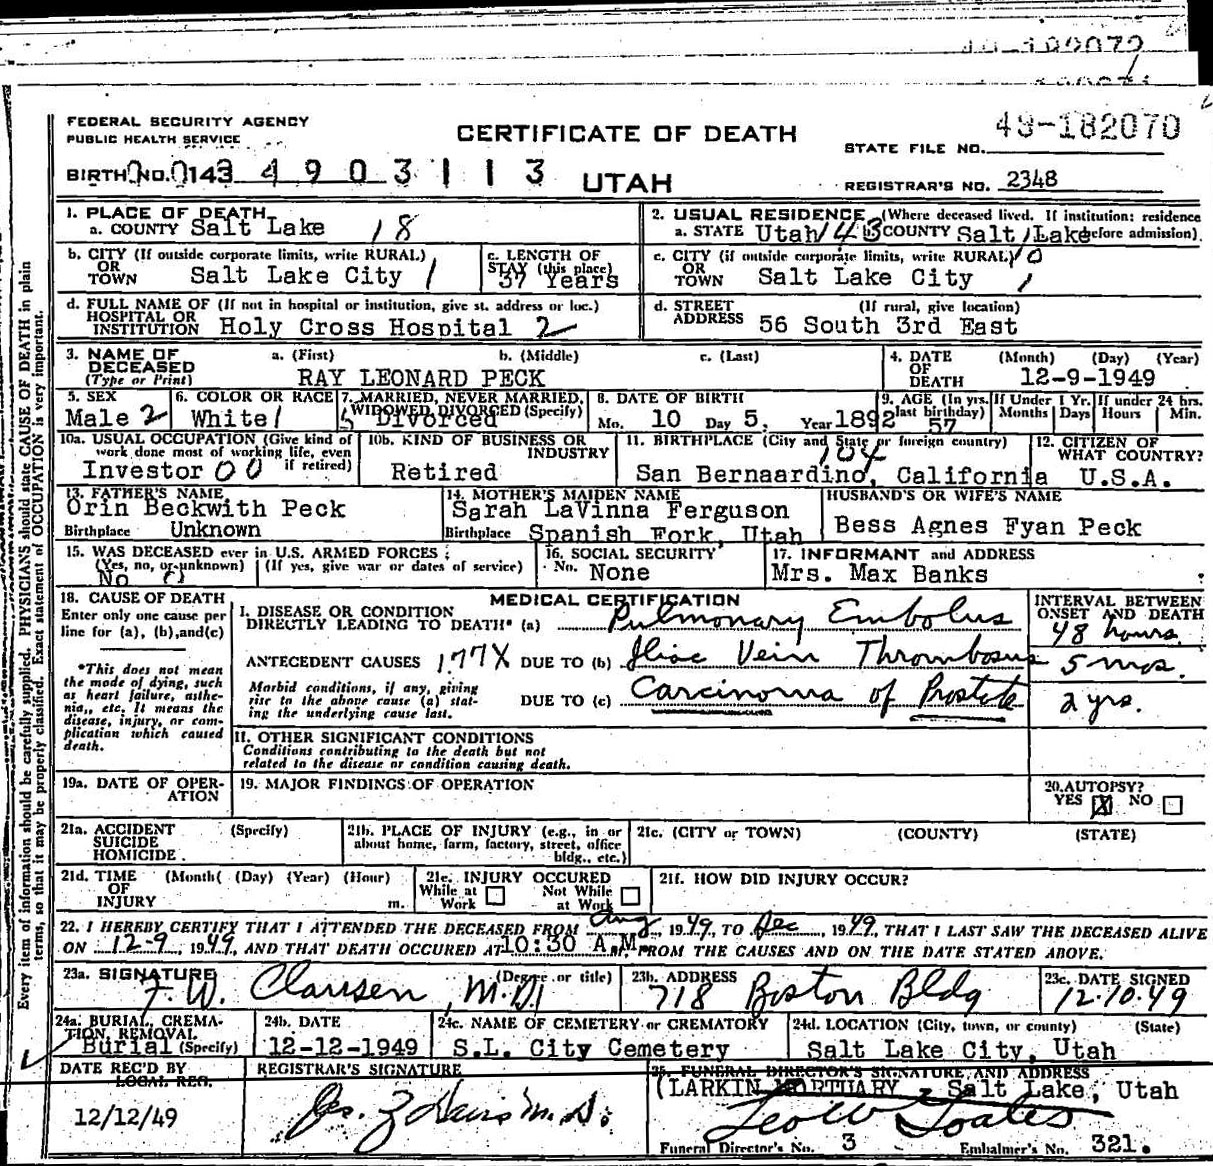 FEDERAL SECURITY AGENCY
PUBLIC HEALTH SERVICE
CERTIFICATE OF DEATH
49-182070
STATE FILE NO.
BIRTH NO. 0143 4903113 UTAH
REGISTRAR'S NO. 2348
1. PLACE OF DEATH
a. COUNTY Salt Lake 18
2. USUAL RESIDENCE (Where deceased lived. If institution: residence
a. STATE Utah 143 COUNTY Salt Lake before admission)
b. CITY (If outside corporate limits, write RURAL)
OR
TOWN Salt Lake City 1
c. LENGTH OF
STAY (this place)
37 Years
c. CITY (if outside corporate limits, write RURAL)
OR
TOWN Salt Lake City 1
d. FULL NAME OF (If not in hospital or institution, give st. address or loc.)
HOSPITAL OR
INSTITUTION Holy Cross Hospital 2
d. STREET (If rural, give location)
ADDRESS 56 South 3rd East
3. NAME OF
DECEASED
(Type or Print)
a. (First) b. (Middle) c. (Last)
RAY LEONARD PECK
4. DATE
OF
DEATH
(Month) (Day) (Year)
12-9-1949
5. SEX
Male 2
6. COLOR OR RACE
White 1
7. MARRIED, NEVER MARRIED,
WIDOWED DIVORCED (Specify)
5 Divorced
8. DATE OF BIRTH
Mo. 10 Day 5, Year 1892
9. AGE (In yrs. last birthday)
57
If Under 1 Yr.
Months Days
If under 24 hrs.
Hours Min.
10a. USUAL OCCUPATION (Give kind of
work done most of working life, even
if retired)
Investor 00
10b. KIND OF BUSINESS OR
INDUSTRY
Retired
11. BIRTHPLACE (City and State or foreign country)
104
San Bernaardino, California
12. CITIZEN OF
WHAT COUNTRY?
U.S.A.
13. FATHER'S NAME
Orin Beckwith Peck
Birthplace Unknown
14. MOTHER'S MAIDEN NAME
Sarah LaVinna Ferguson
Birthplace Spanish Fork, Utah
HUSBAND'S OR WIFE'S NAME
Bess Agnes Fyan Peck
15. WAS DECEASED ever in U.S. ARMED FORCES
(Yes, no, or unknown) (If yes, give war or dates of service)
No 0
16. SOCIAL SECURITY
No. None
17. INFORMANT and ADDRESS
Mrs. Max Banks
18. CAUSE OF DEATH
Enter only one cause per
line for (a), (b), and (c)
*This does not mean
the mode of dying, such
as heart failure, asthe-
nia,, etc. It means the
disease, injury, or com-
plication which caused
death.
MEDICAL CERTIFICATION
I. DISEASE OR CONDITION
DIRECTLY LEADING TO DEATH* (a) Pulmonary Embolus
ANTECEDENT CAUSES 177X DUE TO (b) Iliac Vein Thrombosus
Morbid conditions, if any, giving
rise to the above cause (a) stat-
ing the underlying cause last.
DUE TO (c) Carcinoma of Prostate
INTERVAL BETWEEN
ONSET AND DEATH
48 hours.
5 mos.
2 yrs.
II. OTHER SIGNIFICANT CONDITIONS
Conditions contributing to the death but not
related to the disease or condition causing death.
19a. DATE OF OPER-
ATION
19. MAJOR FINDINGS OF OPERATION
20. AUTOPSY?
YES X NO
21a. ACCIDENT (Specify)
SUICIDE
HOMICIDE
21b. PLACE OF INJURY (e.g., in or
about home, farm, factory, street, office
bldg., etc.)
21c. (CITY or TOWN) (COUNTY) (STATE)
21d. TIME (Month( (Day) (Year) (Hour)
OF
INJURY m.
21e. INJURY OCCURED
While at Work Not While at Work
21f. HOW DID INJURY OCCUR?
22. I HEREBY CERTIFY THAT I ATTENDED THE DECEASED FROM Aug, 1949, TO Dec, 1949, THAT I LAST SAW THE DECEASED ALIVE
ON 12-9, 1949, AND THAT DEATH OCCURED AT 10:30 A.M. FROM THE CAUSES AND ON THE DATE STATED ABOVE.
23a. SIGNATURE (Degree or title)
F. W. Clausen, M.D.
23b. ADDRESS
718 Boston Bldg
23c. DATE SIGNED
12-10-49
24a. BURIAL, CREMA-
TION, REMOVAL
Burial (Specify)
24b. DATE
12-12-1949
24c. NAME OF CEMETERY or CREMATORY
S.L. City Cemetery
24d. LOCATION (City, town, or county) (State)
Salt Lake City, Utah
DATE REC'D BY
LOCAL REG.
12/12/49
REGISTRAR'S SIGNATURE
25. FUNERAL DIRECTOR'S SIGNATURE AND ADDRESS
(LARKIN MORTUARY - Salt Lake, Utah
Funeral Director's No. 3 Embalmer's No. 321.
Every item of information should be carefully supplied. PHYSICIANS should state CAUSE OF DEATH in plain
terms, so that it may be properly classified. Exact statement of OCCUPATION is very important.